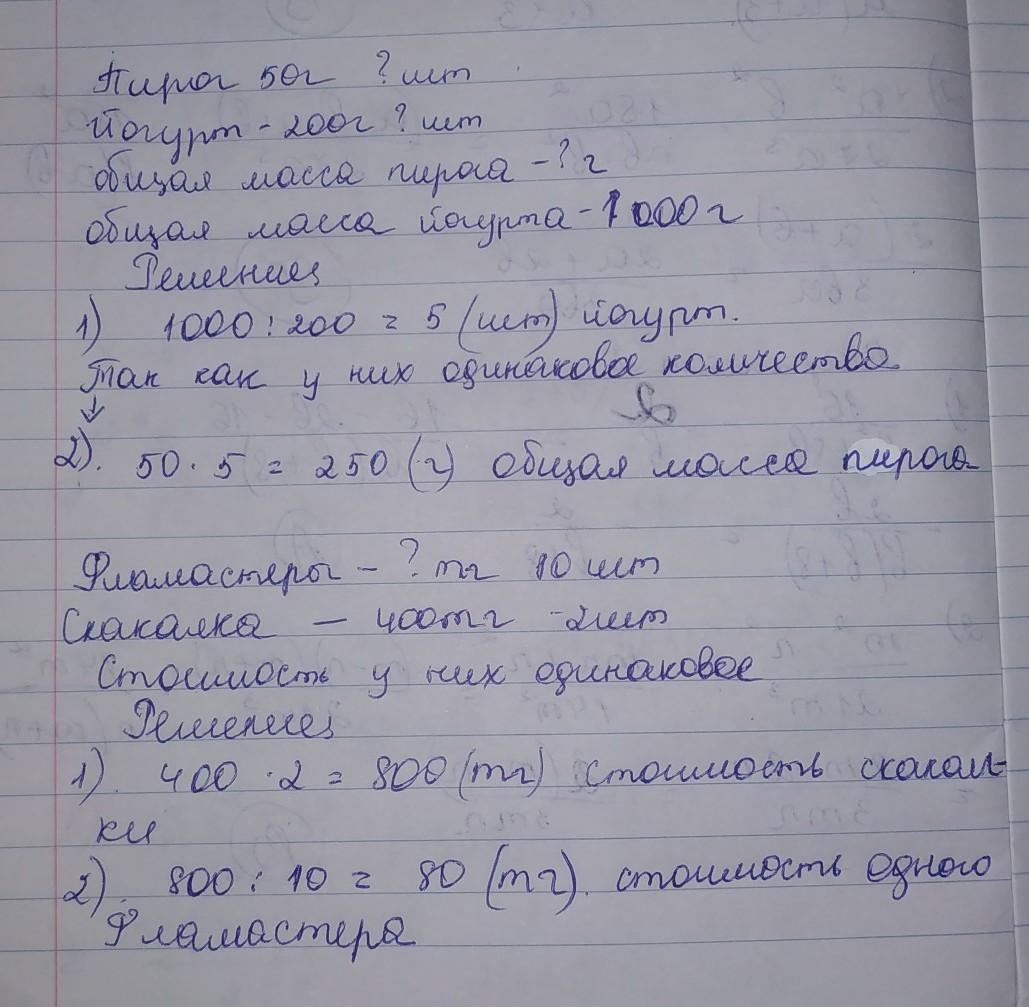 Пирог 50г ? шт
Йогурт - 200г ? шт
общая масса пирога - ? г
общая масса йогурта - 1000 г
Решение
1) 1000 : 200 = 5 (шт) йогурт.
Так как у них одинаковое количество
↓
2). 50 · 5 = 250 (г) общая масса пирога
Фламастеры - ? тг 10 шт
Скакалка — 400тг - 2шт
Стоимость у них одинаковое
Решение
1). 400 · 2 = 800 (тг) стоимость скакал-
ки
2). 800 : 10 = 80 (тг). стоимость одного
Фламастера